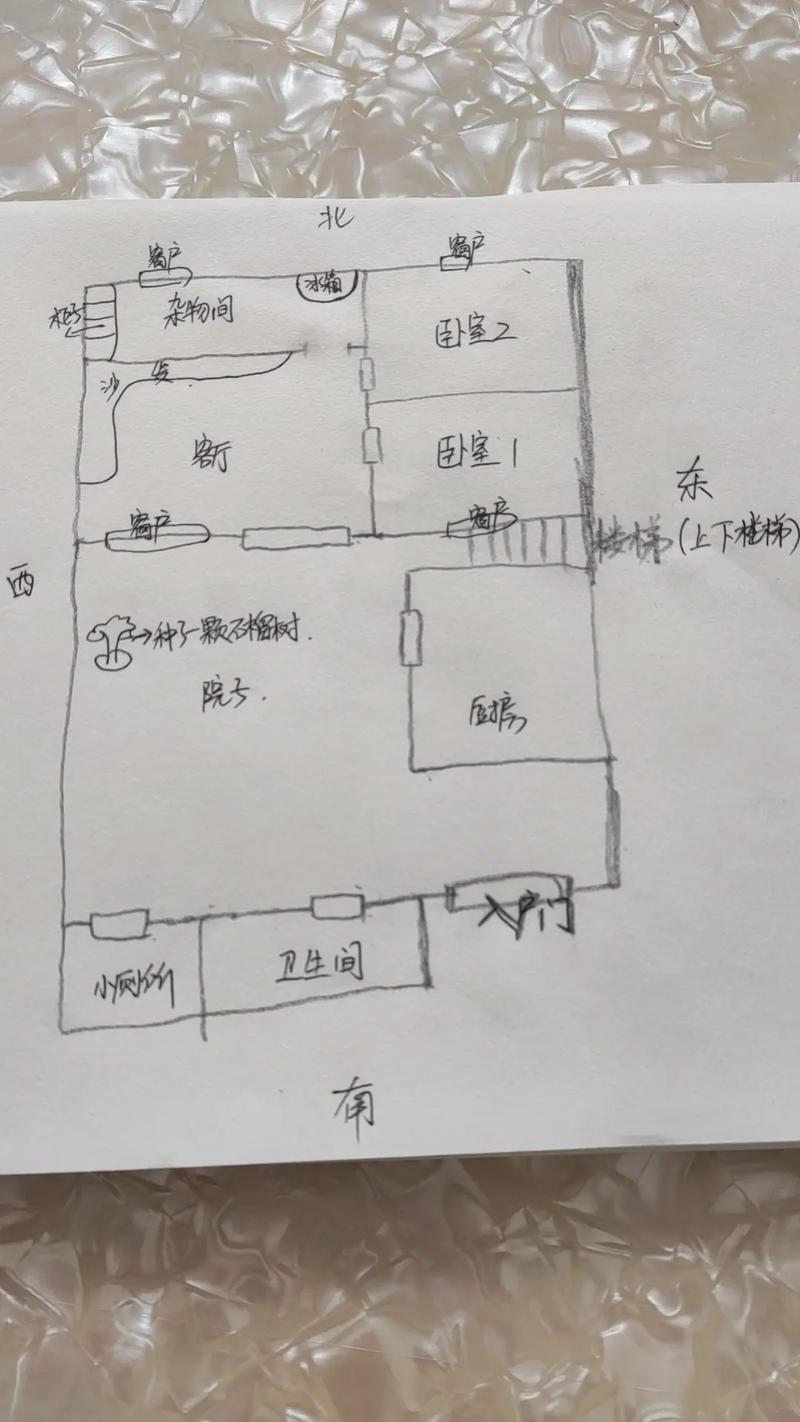 北
窗户
窗户
柜子
杂物间
冰箱
卧室2
沙发
客厅
卧室1
东
窗户
窗户
楼梯(上下楼梯)
西
→种了一颗石榴树.
院子.
厨房
入户门
小厕所
卫生间
南